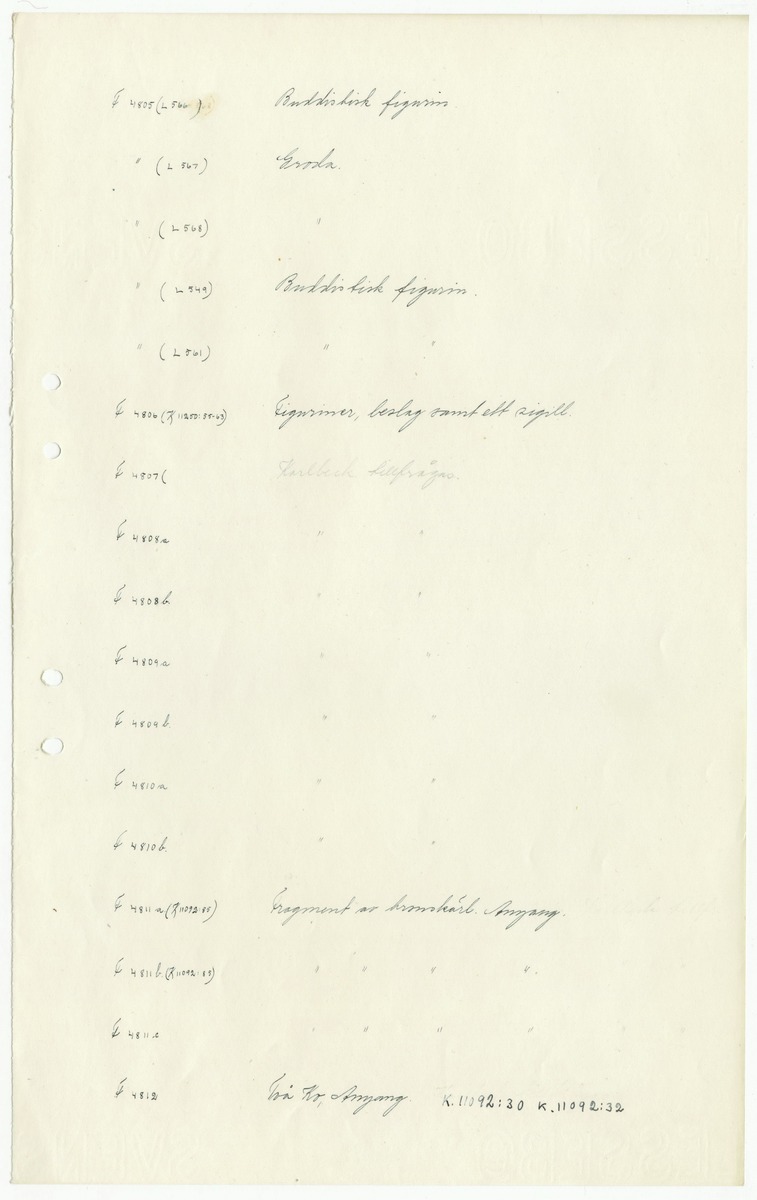 F 4805 (L 566) Buddistisk figurin
" (L 567) Groda.
" (L 568) "
" (L 549) Buddistisk figurin.
" (L 561) " "
F 4806 (K 11250:55-63) Figuriner, beslag samt ett sigill.
F 4807 ( Karlbeck tillfrågas.
F 4808a " "
F 4808b. " "
F 4809a " "
F 4809b. " "
F 4810a " "
F 4810b. " "
F 4811a (K11092:85) Fragment av bronskärl. Anyang.
F 4811b. (K11092:83) " " " ".
F 4811c " " " "
F 4812 Två Ko, Anyang. K.11092:30 K.11092:32